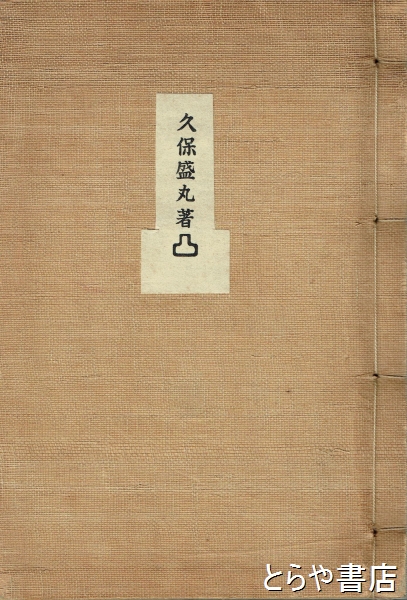 久保盛丸著凸
とらや書店